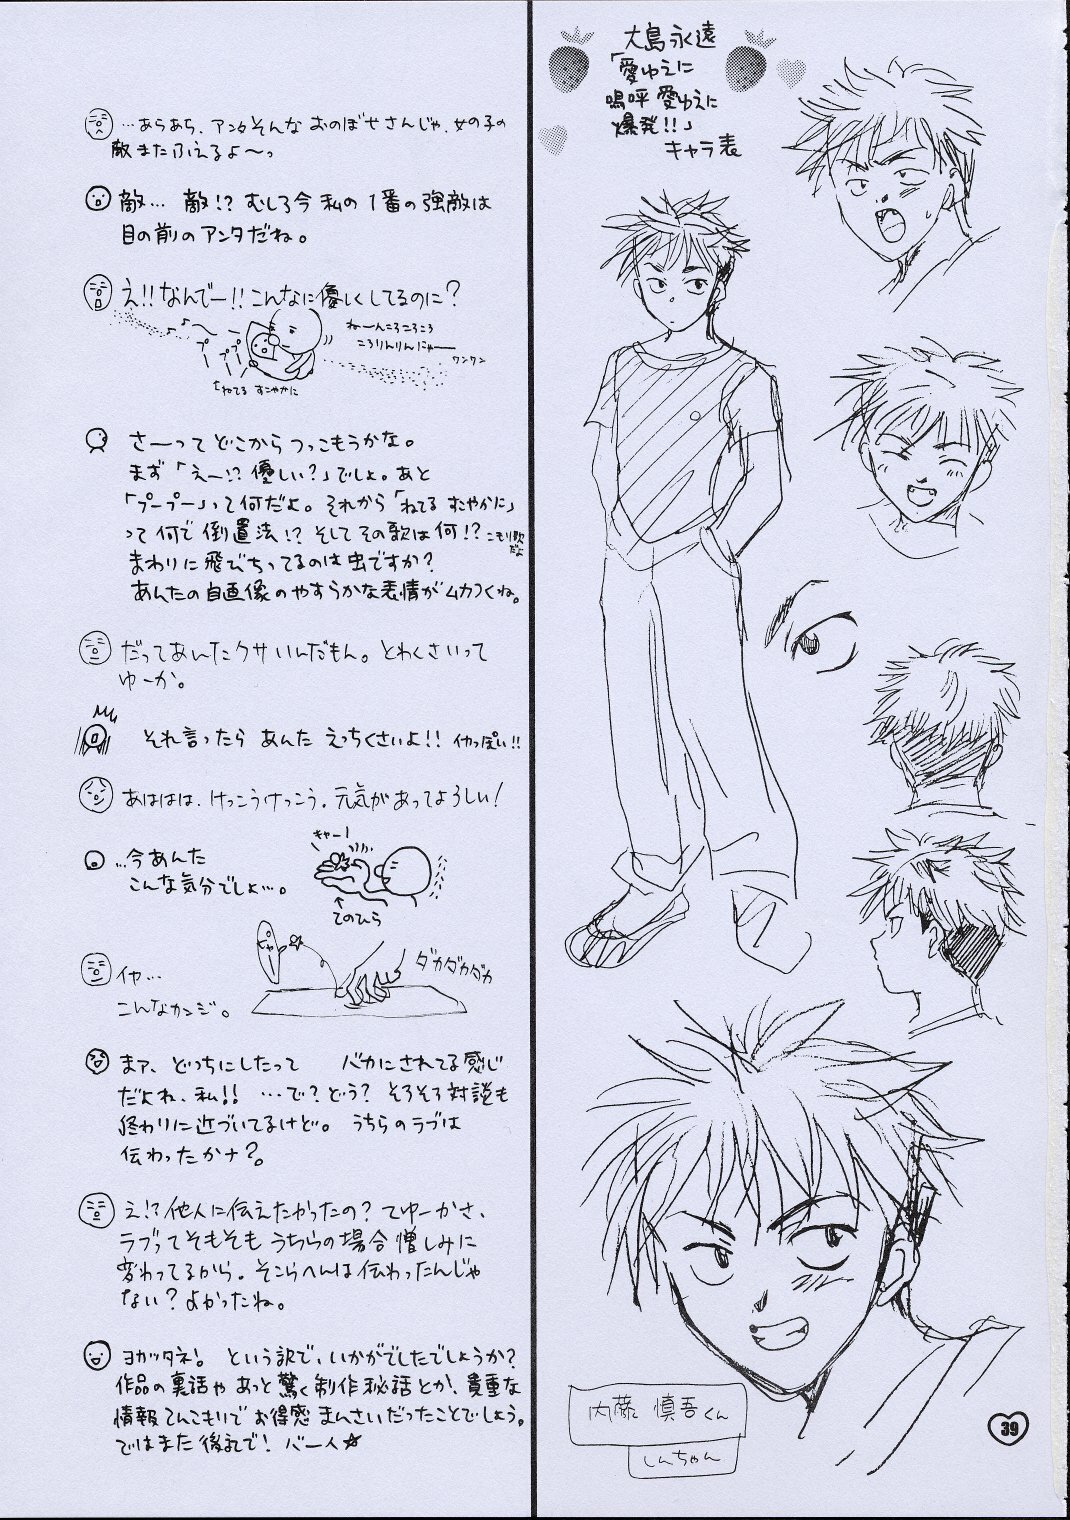 …あらあら、アンタそんな おのぼせさんじゃ、女の子の
敵またふえるよ〜っ
敵… 敵!? むしろ今 私の 1番の強敵は
目の前のアンタだね。
え!!なんでー!!こんなに優しくしてるのに?
ねーんころころころ
ころりんりんにゃー
ワンワン
プープププ
↑ねてる すこやかに
さーって どこから つっこもうかな。
まず「えー!? 優しい?」でしょ。あと
「プープー」って何だよ。それから「ねてる すこやかに」
って何で 倒置法!? そしてその歌は何!? こもり歌だよ
まわりに飛びちってるのは虫ですか?
あんたの自画像のやすらかな表情がムカつくね。
だってあんたクサいんだもん。とわくさいって
ゆーか。
それ言ったら あんた えっちくさいよ!! イカっぽい!!
あははは、けっこうけっこう。元気があってよろしい!
…今あんた
こんな気分でしょ…。
キャー!
↑てのひら
イヤ…
こんなカンジ。
ピャー
ダカダカダカ
まァ、どっちにしたって バカにされてる感じ
だよね、私!! …で?どう? そろそろ対談も
終わりに近づいてるけど。 うちらのラブは
伝わったかナ?。
え!?他人に伝えたかったの?てゆーかさ、
ラブってそもそも うちらの場合 憎しみに
変わってるから。そこらへんは伝わったんじゃ
ない?よかったね。
ヨカッタネ!。 という訳で、いかがでしたでしょうか?
作品の裏話や あっと驚く制作秘話とか、貴重な
情報てんこもりで お得感 まんさいだったことでしょう。
ではまた後記で! バーイ☆
大島永遠
「愛ゆえに
嗚呼 愛ゆえに
爆発!!」
キャラ表
内藤 慎吾くん
しんちゃん
39